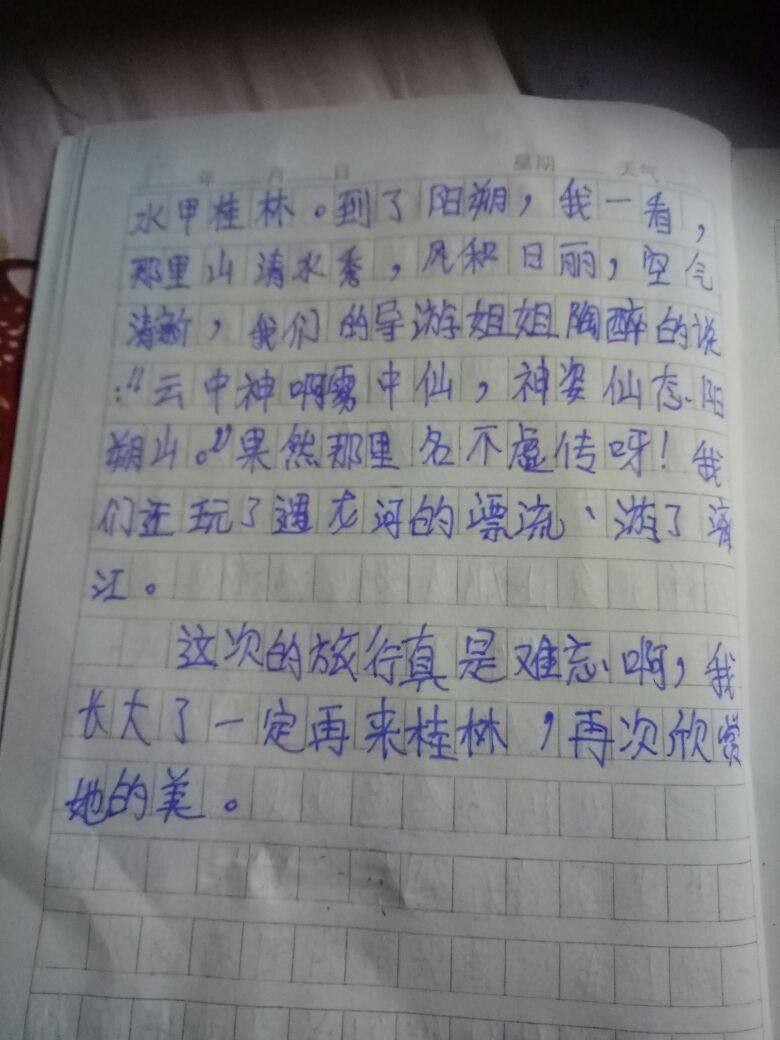 年 月 日 星期 天气
水甲桂林。到了阳朔，我一看，
那里山清水秀，风和日丽，空气
清新，我们的导游姐姐陶醉的说
：“云中神啊雾中仙，神姿仙态阳
朔山。”果然那里名不虚传呀！我
们还玩了遇龙河的漂流、游了漓
江。
这次的旅行真是难忘啊，我
长大了一定再来桂林，再次欣赏
她的美。